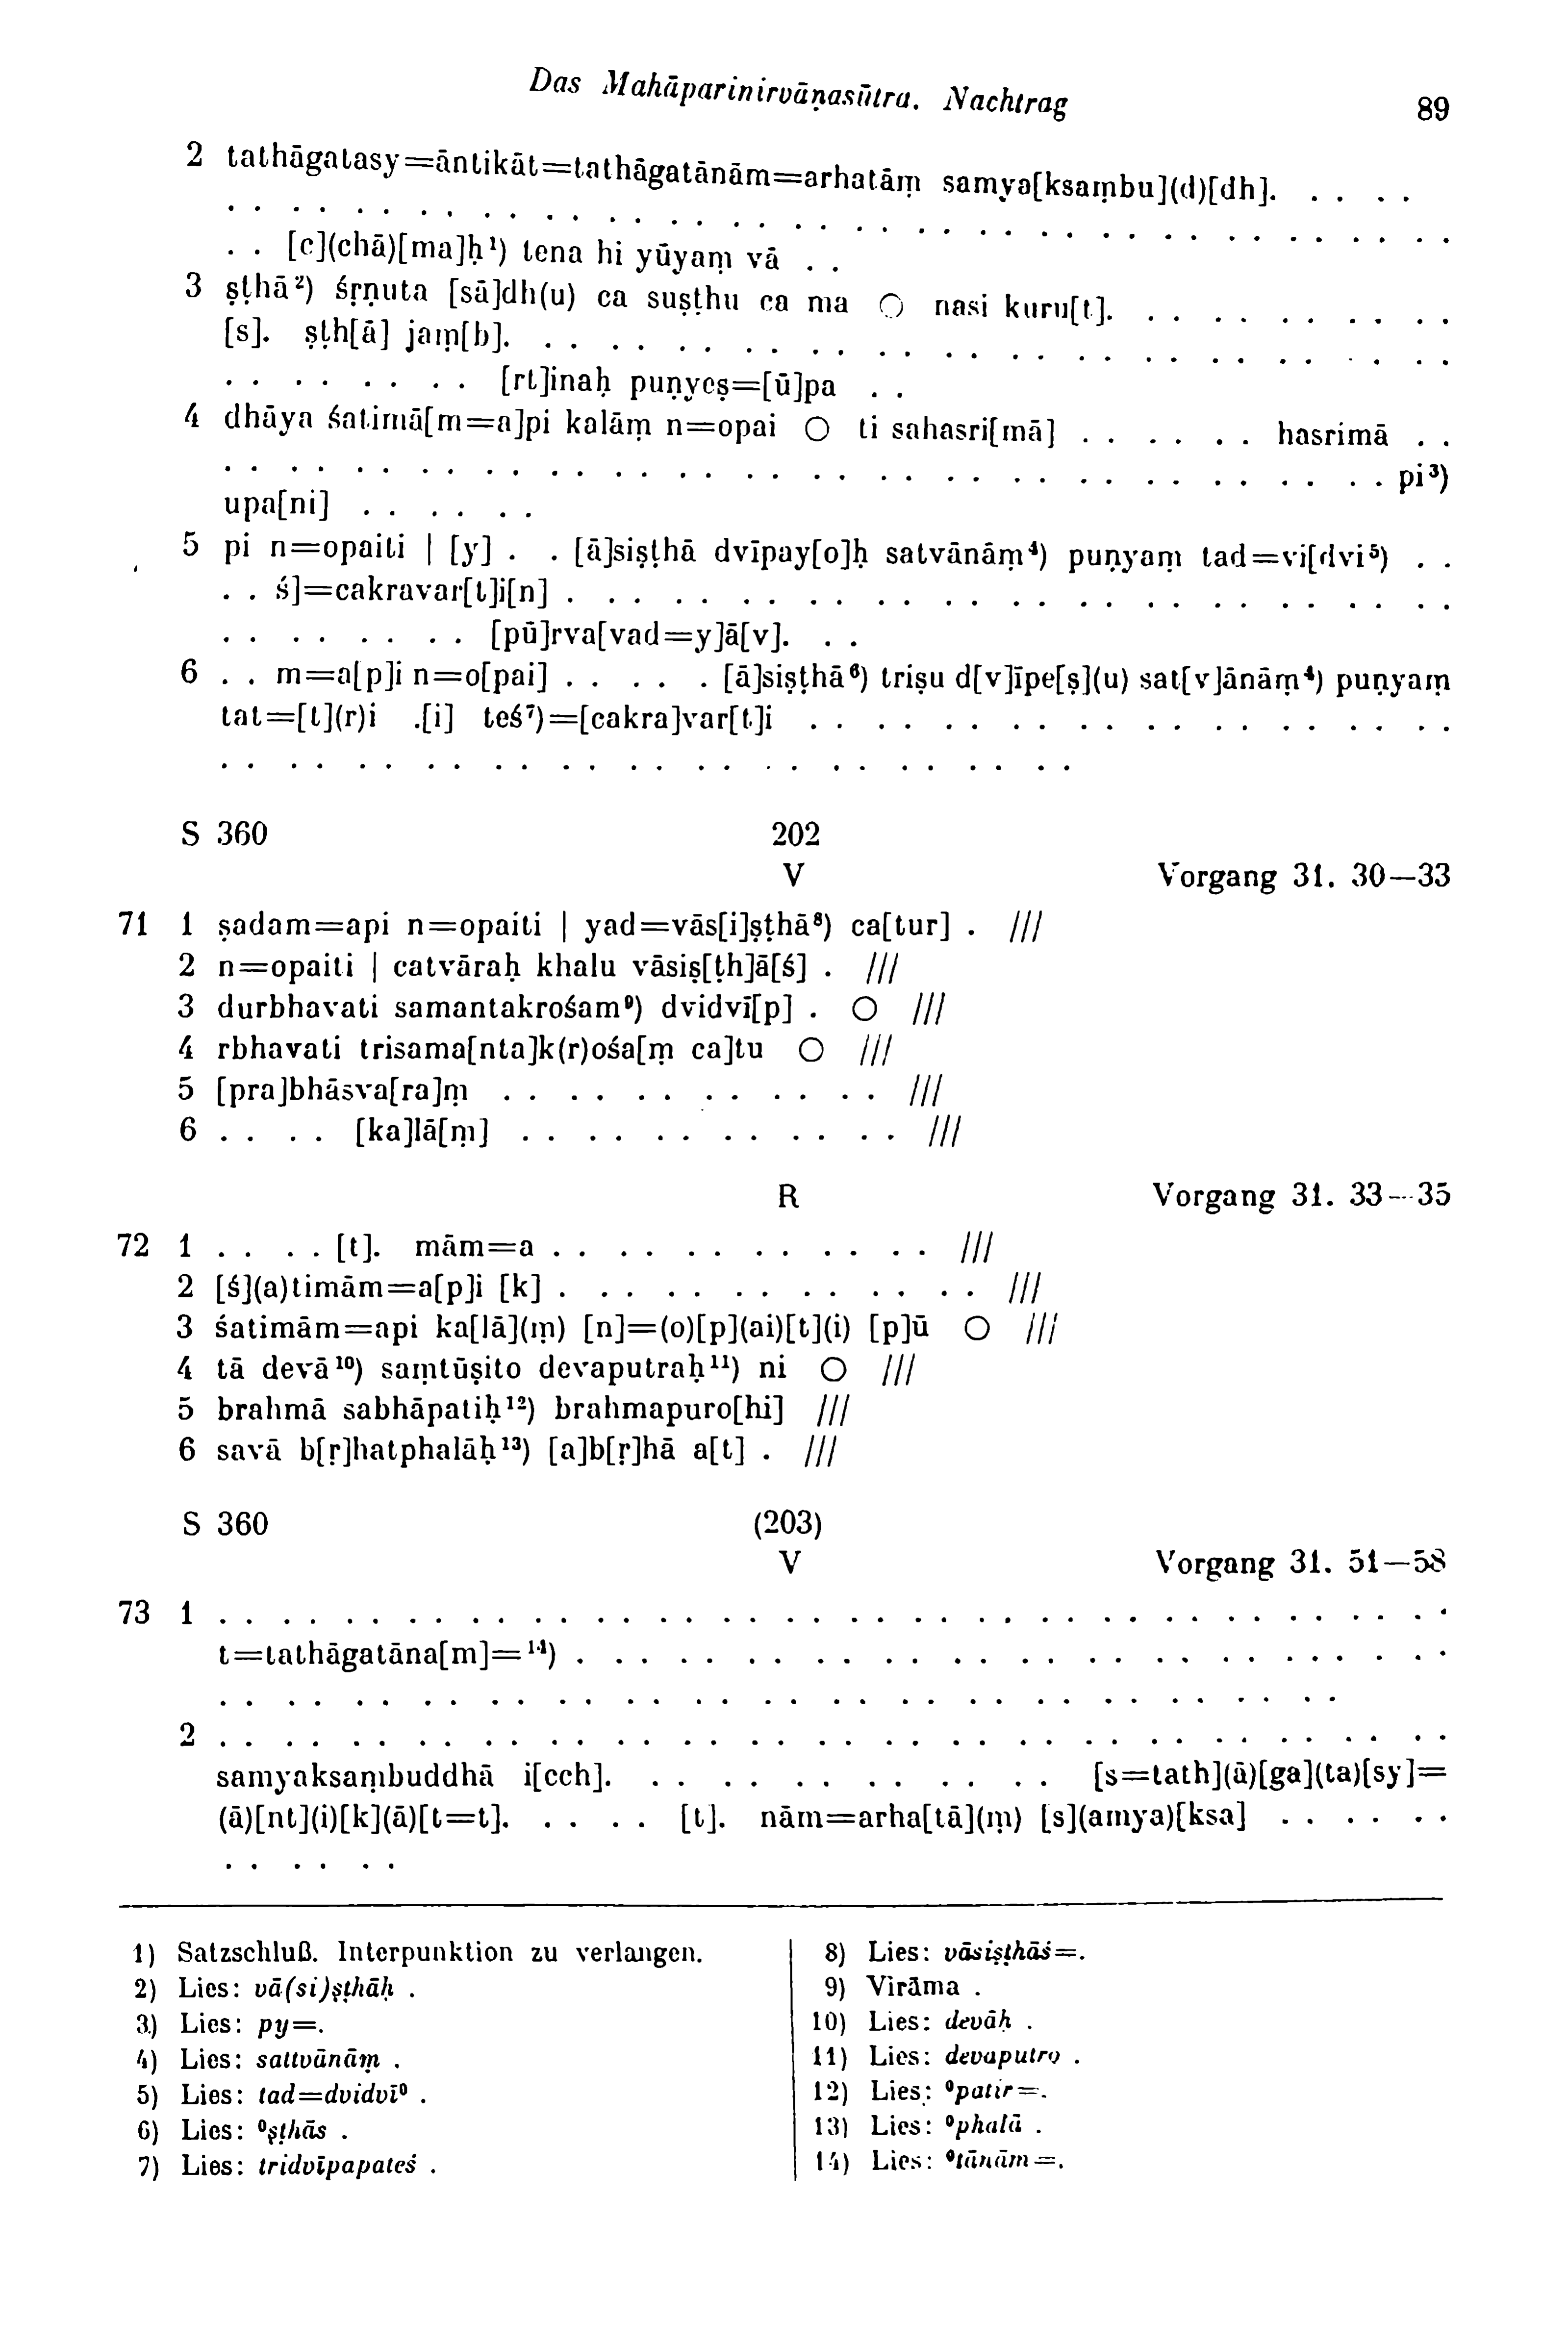 Das Mahāparinirvāṇasūtra. Nachtrag 89
2 tathāgatasy=āntikāt=tathāgatānām=arhatāṃ samya[ksaṃbu](d)[dh]. . . . .
. . . . . . . . . . . . . . . . . . . . . . . . . . . . . . . . . . . . . .
. . [c](chā)[ma]ḥ¹) tena hi yūyaṃ vā . .
3 ṣṭhā²) śṛṇuta [sā]dh(u) ca suṣṭhu ca ma ○ nasi kuru[t]. . . . . . . . . . . .
[s]. ṣṭh[ā] jaṃ[b]. . . . . . . . . . . . . . . . . . . . . . . . . . . . .
. . . . . . . . [rt]inaḥ puṇyeṣ=[ū]pa . .
4 dhāya śatimā[m=a]pi kalāṃ n=opai ○ ti sahasri[mā] . . . . . . hasrimā . .
. . . . . . . . . . . . . . . . . . . . . . . . . . . . . . . . . . . . pi³)
upa[ni] . . . . . .
5 pi n=opaiti | [y] . . [ā]siṣṭhā dvīpay[o]ḥ satvānāṃ⁴) puṇyaṃ tad=vi[dvi⁵) . .
. . ś]=cakravar[t]i[n] . . . . . . . . . . . . . . . . . . . . . . . . . . .
. . . . . . . . [pū]rva[vad=y]ā[v]. . .
6 . . m=a[p]i n=o[pai] . . . . . [ā]siṣṭhā⁶) triṣu d[v]īpe[ṣ](u) sat[v]ānāṃ⁴) puṇyaṃ
tat=[t](r)i .[i] teś⁷)=[cakra]var[t]i . . . . . . . . . . . . . . . . . . . .
. . . . . . . . . . . . . . . . . . . . . . . . . .
S 360 202
V Vorgang 31. 30—33
71 1 ṣadam=api n=opaiti | yad=vās[i]ṣṭhā⁸) ca[tur] . ///
2 n=opaiti | catvāraḥ khalu vāsiṣ[ṭh]ā[ś] . ///
3 durbhavati samantakrośam⁹) dvidvī[p] . ○ ///
4 rbhavati trisama[nta]k(r)ośa[ṃ ca]tu ○ ///
5 [pra]bhāsva[ra]ṃ . . . . . . . . . . . . ///
6 . . . . [ka]lā[ṃ] . . . . . . . . . . . . ///
R Vorgang 31. 33—35
72 1 . . . . [t]. mām=a . . . . . . . . . . . . ///
2 [ś](a)timām=a[p]i [k] . . . . . . . . . . . . . ///
3 śatimām=api ka[lā](ṃ) [n]=(o)[p](ai)[t](i) [p]ū ○ ///
4 tā devā¹⁰) saṃtūṣito devaputraḥ¹¹) ni ○ ///
5 brahmā sabhāpatiḥ¹²) brahmapuro[hi] ///
6 savā b[ṛ]hatphalāḥ¹³) [a]b[ṛ]hā a[t] . ///
S 360 (203)
V Vorgang 31. 51—58
73 1 . . . . . . . . . . . . . . . . . . . . . . . . . . . . . . . . . . . . . .
t=tathāgatāna[m]=¹⁴) . . . . . . . . . . . . . . . . . . . . . . . . . . .
. . . . . . . . . . . . . . . . . . . . . . . . . . . . . . . . . .
2 . . . . . . . . . . . . . . . . . . . . . . . . . . . . . . . . . . . . . .
samyaksaṃbuddhā i[cch]. . . . . . . . . . . . . . [s=tath](ā)[ga](ta)[sy]=
(ā)[nt](i)[k](ā)[t=t]. . . . . [t]. nām=arha[tā](ṃ) [s](amya)[ksa] . . . . . .
. . . . . .
1) Satzschluß. Interpunktion zu verlangen.
2) Lies: vā(si)ṣṭhāḥ .
3) Lies: py=.
4) Lies: sattvānāṃ .
5) Lies: tad=dvidvī⁰ .
6) Lies: ⁰ṣṭhās .
7) Lies: tridvīpapateś .
8) Lies: vāsiṣṭhāś=.
9) Virāma .
10) Lies: devāḥ .
11) Lies: devaputro .
12) Lies: ⁰patir=.
13) Lies: ⁰phalā .
14) Lies: ⁰tānām=.